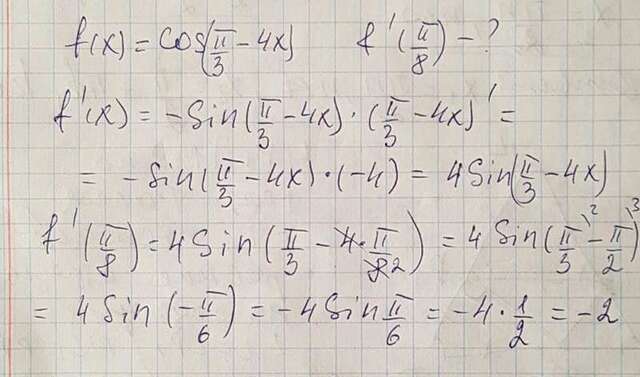 f(x) = cos(π/3 - 4x) f'(π/8) - ?
f'(x) = -sin(π/3 - 4x) · (π/3 - 4x)' =
= -sin(π/3 - 4x) · (-4) = 4 Sin(π/3 - 4x)
f'(π/8) = 4 Sin(π/3 - 4·π/8 2) = 4 Sin(π/3 ² - π/2 ³)
= 4 Sin(-π/6) = -4 Sin π/6 = -4 · 1/2 = -2